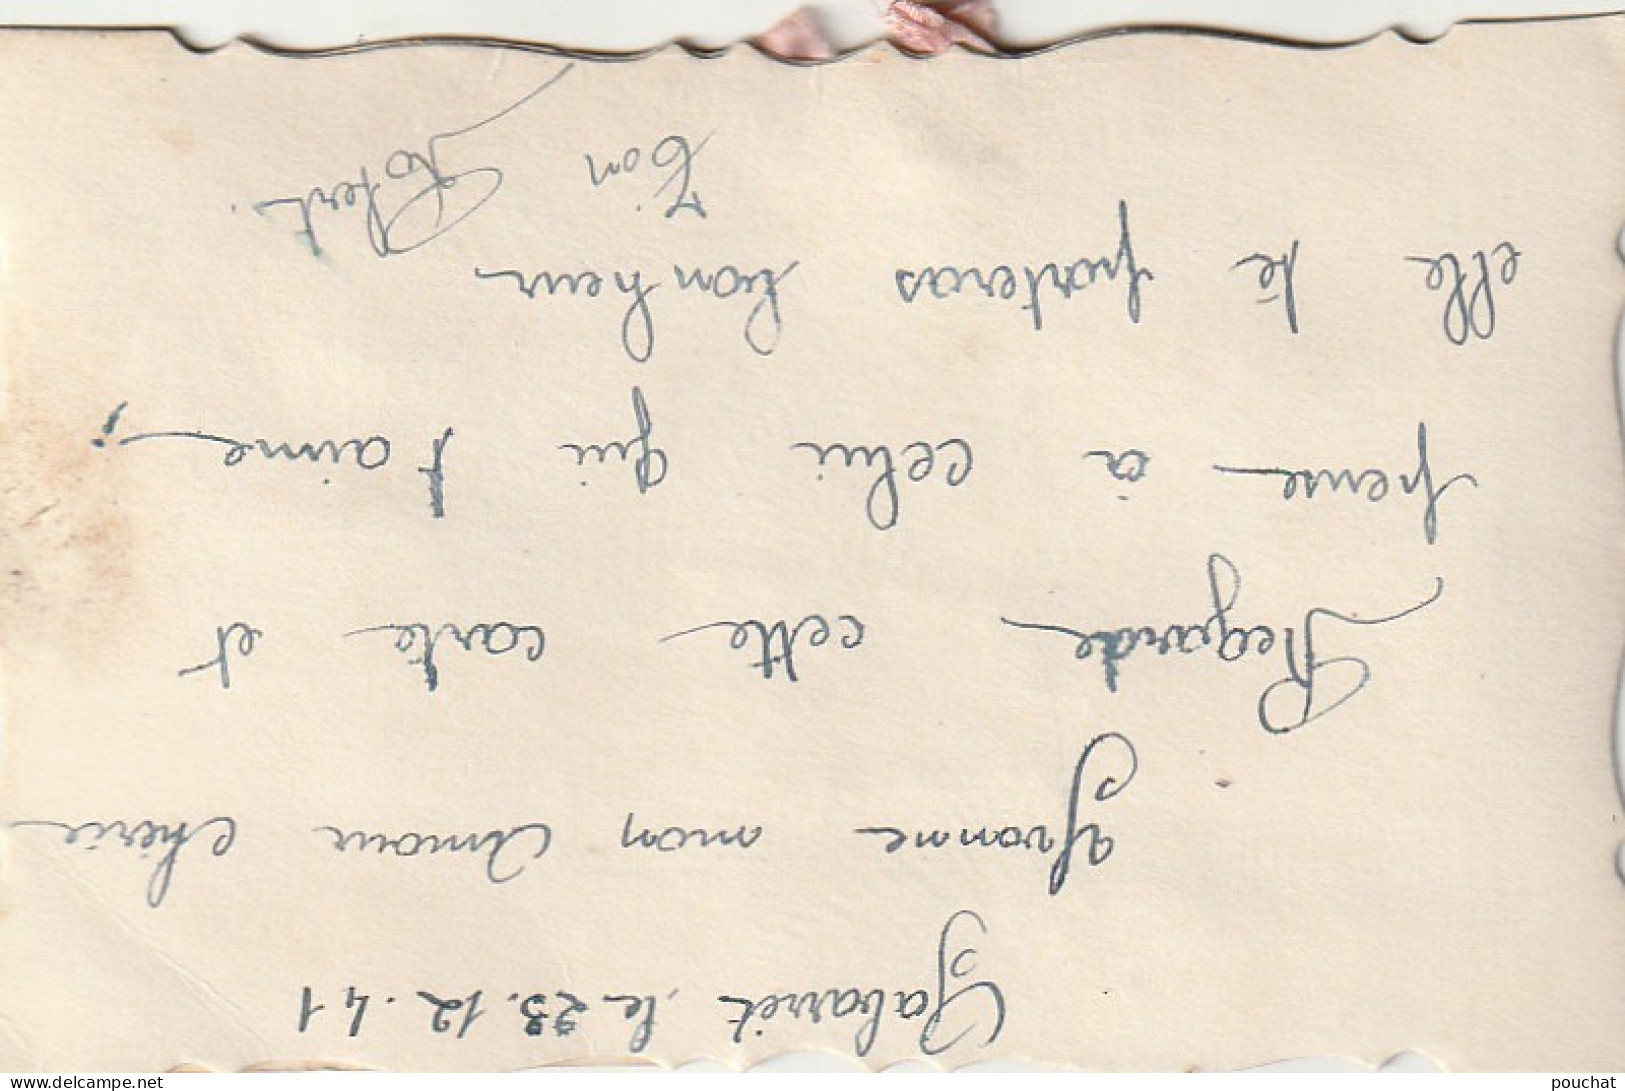 Gabarret, le 23.12.41
Yvonne mon Amour chérie
Regarde cette carte et
pense à celui qui t'aime,
elle te porteras bonheur
Ton
Robert.
www.delcampe.net
pouchat